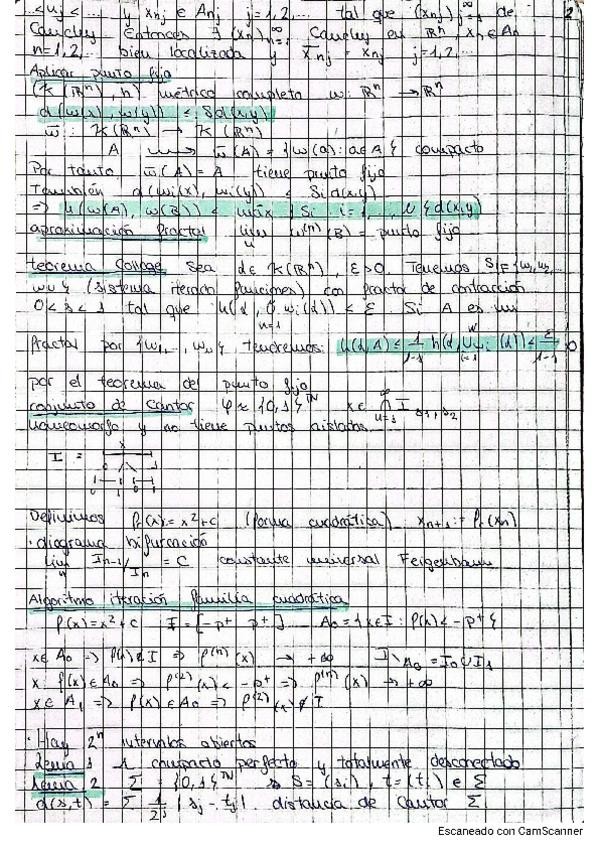 <nj< ... y xnj ∈ Anj j=1,2,... tal que (xnj)j=1^∞ de
Cauchy Entonces ∃ (xn)n=1^∞ Cauchy en ℝⁿ, xn ∈ An
n=1,2,... bien localizada y x̄nj = xnj j=1,2,...
Aplicar punto fijo
(K(ℝⁿ), h) métrico completo w: ℝⁿ → ℝⁿ
d(w(x), w(y)) ≤ s d(x,y)
w̄: K(ℝⁿ) → K(ℝⁿ)
A → w̄(A) = {w(a): a∈A} compacto
Por tanto w̄(A) = A tiene punto fijo
También d(wi(x), wi(y)) < si d(x,y)
=> h(w(A), w(B)) < máx {si i=1,..., N} d(x,y)
aproximación fractal lim w⁽ⁿ⁾(B) = punto fijo
teorema Collage Sea d∈ K(ℝⁿ), ε>0. Tenemos SIF {w1, w2,
wN} (sistema iterado funciones) con factor de contracción
0<s<1 tal que h(d, ∪ wi(d)) < ε. Si A es un
n=1
fractal por {w1,..., wN}, tendremos: h(d,A) ≤ 1/1-s h(d, ∪ wi(d)) < ε/1-s
por el teorema del punto fijo
conjunto de Cantor φ ≈ {0,1}^ℕ x∈ ∩ I s1, s2
homeomorfo y no tiene puntos aislados
I =
Definimos Pc(x) = x²+c (forma cuadrática) xn+1 := Pc(xn)
· diagrama bifurcación
lim In-1/In = C constante universal Feigenbaum
Algoritmo iteración familia cuadrática
P(x) = x²+c I = [-p⁺, p⁺] A0 = {x∈I : P(x) < -p⁺}
x∈A0 => P(x)∉I => P⁽ⁿ⁾(x) → +∞ I\A0 = I0∪I1
x: P(x)∈A0 => P⁽²⁾(x) < -p⁺ => P⁽ⁿ⁾(x) → +∞
x∈A1 => P(x)∈A0 => P⁽²⁾(x)∉I
· Hay 2ⁿ intervalos abiertos
Lema 1 compacto perfecto y totalmente desconectado
Lema 2 Σ = {0,1}^ℕ s = (si), t = (ti) ∈ Σ
d(s,t) = Σ 1/2^j |sj - tj| distancia de Cantor Σ
2
Escaneado con CamScanner